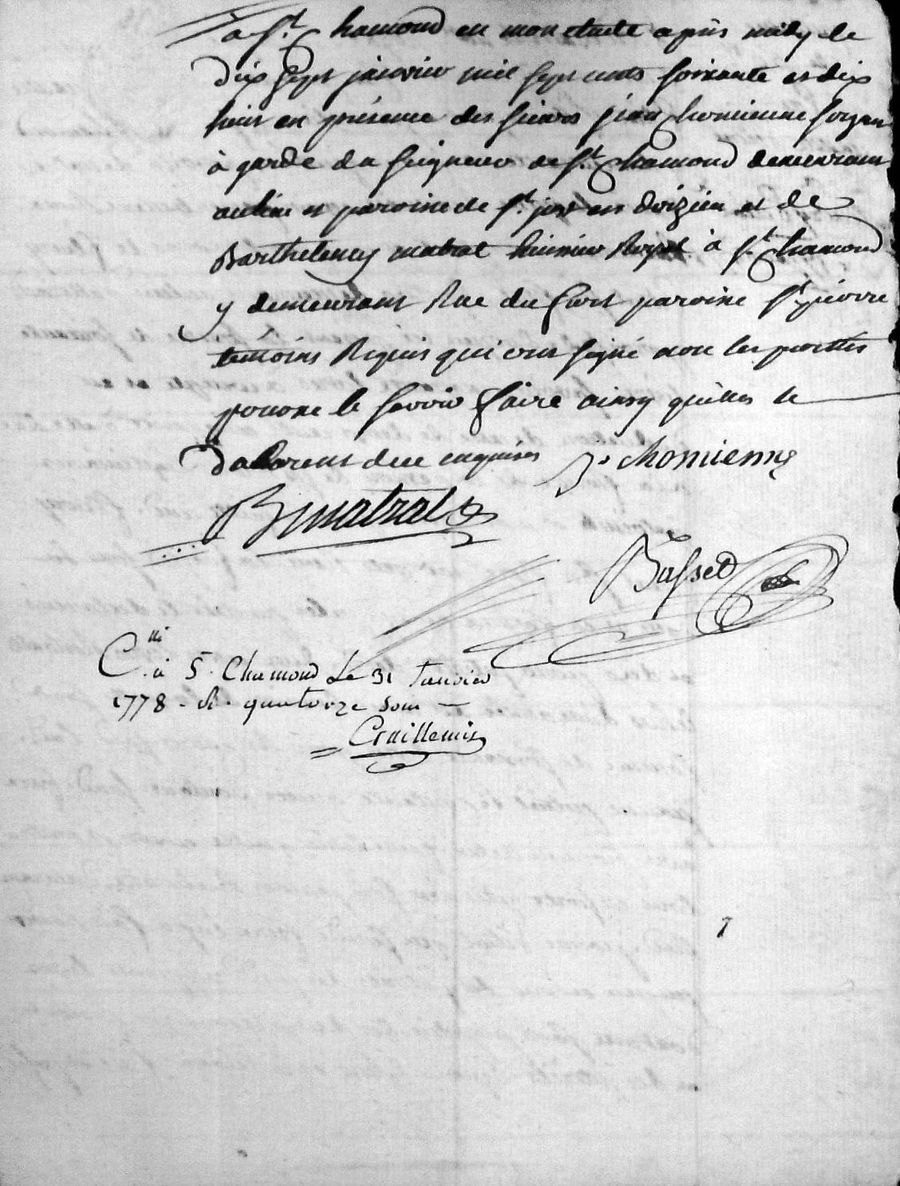 à St. Chamond en mon etude après midy le
dix sept janvier mil sept cents soixante et dix
huit en présence des sieurs jean Chomienne
à garde du seigneur de St. Chamond demeurant
au lieu et paroisse de St. just en doizieu et de
Barthelemy matrat huissier Royal à St. Chamond
y demeurant Rue du fort paroisse St. pierre
temoins Requis qui ont signé non les parties
pour ne le savoir faire ainsy quelles le
declarent de ce enquises J. chomienne
B matrat
Basset
C.lé à S. Chamond Le 31 Janvier
1778 - R. quatorze sous -